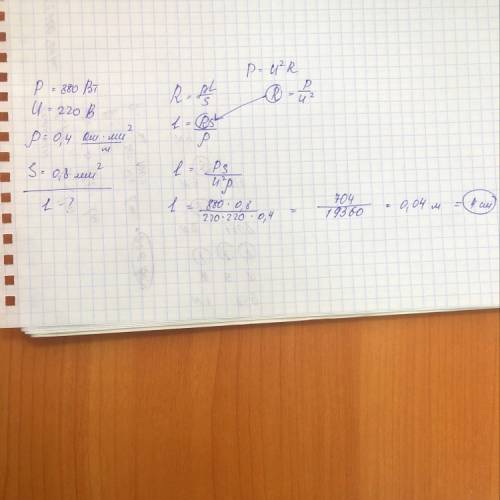 P = 880 Вт
U = 220 В
ρ = 0,4 Ом·мм²/м
S = 0,8 мм²
l - ?
P = U²R
R = ρl/S
R = P/U²
l = RS/ρ
l = PS/U²ρ
l = 880·0,8/220·220·0,4 = 704/19360 = 0,04 м = 4 см